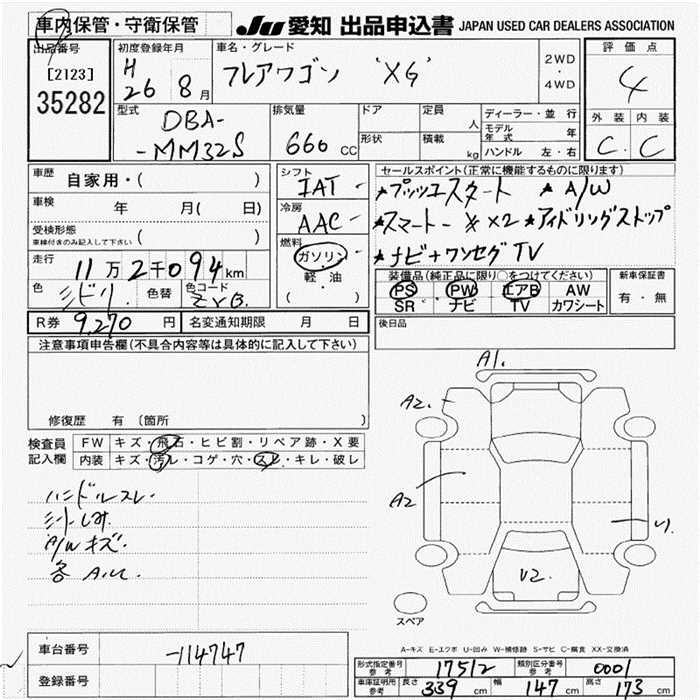 車内保管・守衛保管 JU 愛知 出品申込書 JAPAN USED CAR DEALERS ASSOCIATION
出品番号 初度登録年月 車名・グレード 2WD・4WD 評価点
[2123]
35282
H26 8月
フレアワゴン 'XG'
4
型式 排気量 ドア 定員 人 ディーラー・並行 外装 内装
DBA-
-MM32S
660 CC
形状 積載 kg モデル年式 年
ハンドル 左・右
C C
車歴 自家用・( )
シフト IAT
セールスポイント(正常に機能するものに限ります)
車検 年 月( 日)
冷房 AAC
★プッシュスタート ★A/W
受検形態 車検付きのみ記入して下さい ( )
★アイドリングストップ
燃料 ガソリン 軽油 ( )
★ナビ+ワンセグTV
走行 11万2千094km
装備品(純正品に限り○をつけてください) 新車保証書
色 ミドリ 色替 色コード ZVB
PS PW エアB AW
SR ナビ TV カワシート
有・無
R券 9,270 円 名変通知期限 月 日
後日品
注意事項申告欄(不具合内容等は具体的に記入して下さい)
修復歴 有 (箇所 )
A1.
A2.
A2
U1
V2.
スペア
検査員記入欄 FW キズ・飛石・ヒビ割・リペア跡・X要
内装 キズ・汚レ・コゲ・穴・スレ・キレ・破レ
ハンドルスレ
シートしみ
A/Wキズ
各A.U.
A-キズ E-エクボ U-凹み W-補修跡 S-サビ C-腐食 XX-交換済
車台番号 -114747
登録番号
形式指定番号 参考 17512 類別区分番号 参考 0001
車庫証明用 参考 長さ 339 cm 幅 147 cm 高さ 173 cm